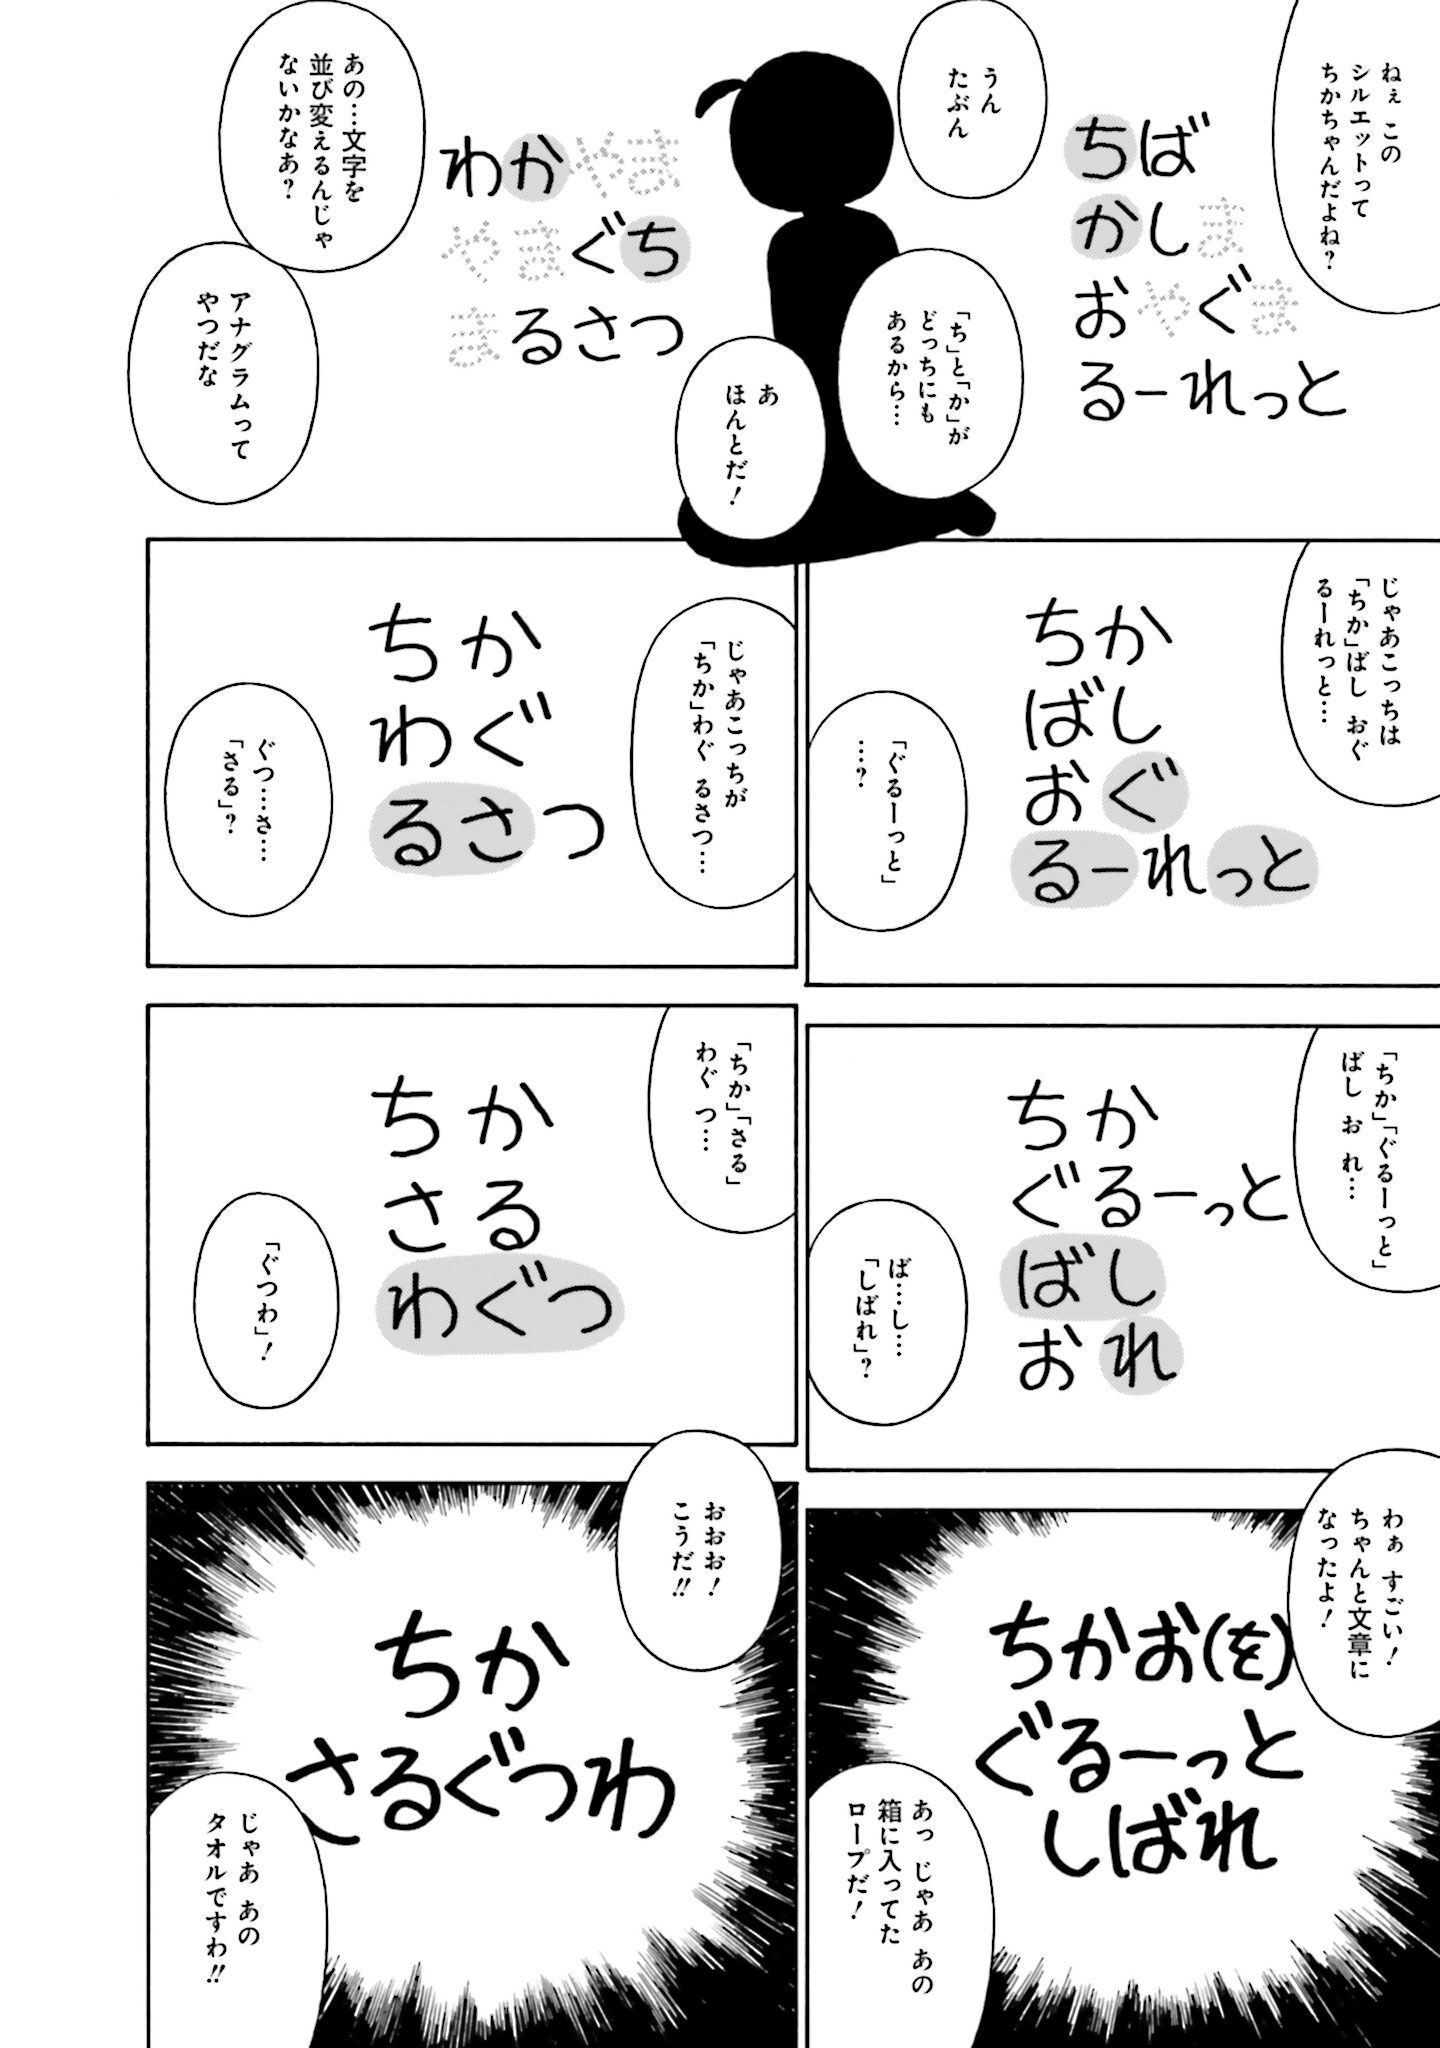 ねぇ この
シルエットって
ちかちゃんだよね?
ちば
かしま
おやぐま
るーれっと
うん
たぶん
「ち」と「か」が
どっちにも
あるから…
あ
ほんとだ!
わかやま
やまぐち
まるさつ
あの…文字を
並び変えるんじゃ
ないかなあ?
アナグラムって
やつだな
じゃあこっちは
「ちか」ばし おぐ
るーれっと…
ちか
ばし
おぐ
るーれっと
「ぐるーっと」
…?
じゃあこっちが
「ちか」わぐ るさつ…
ちか
わぐ
るさつ
ぐつ…さ…
「さる」?
「ちか」「ぐるーっと」
ばし お れ…
ちか
ぐるーっと
ばし
おれ
ば…し…
「しばれ」?
「ちか」「さる」
わぐ つ…
ちか
さる
わぐつ
「ぐつわ」!
わぁ すごい!
ちゃんと文章に
なったよ!
ちかお(を)
ぐるーっと
しばれ
あっ じゃあ あの
箱に入ってた
ロープだ!
おおお!
こうだ!!
ちか
さるぐつわ
じゃあ あの
タオルですわ!!